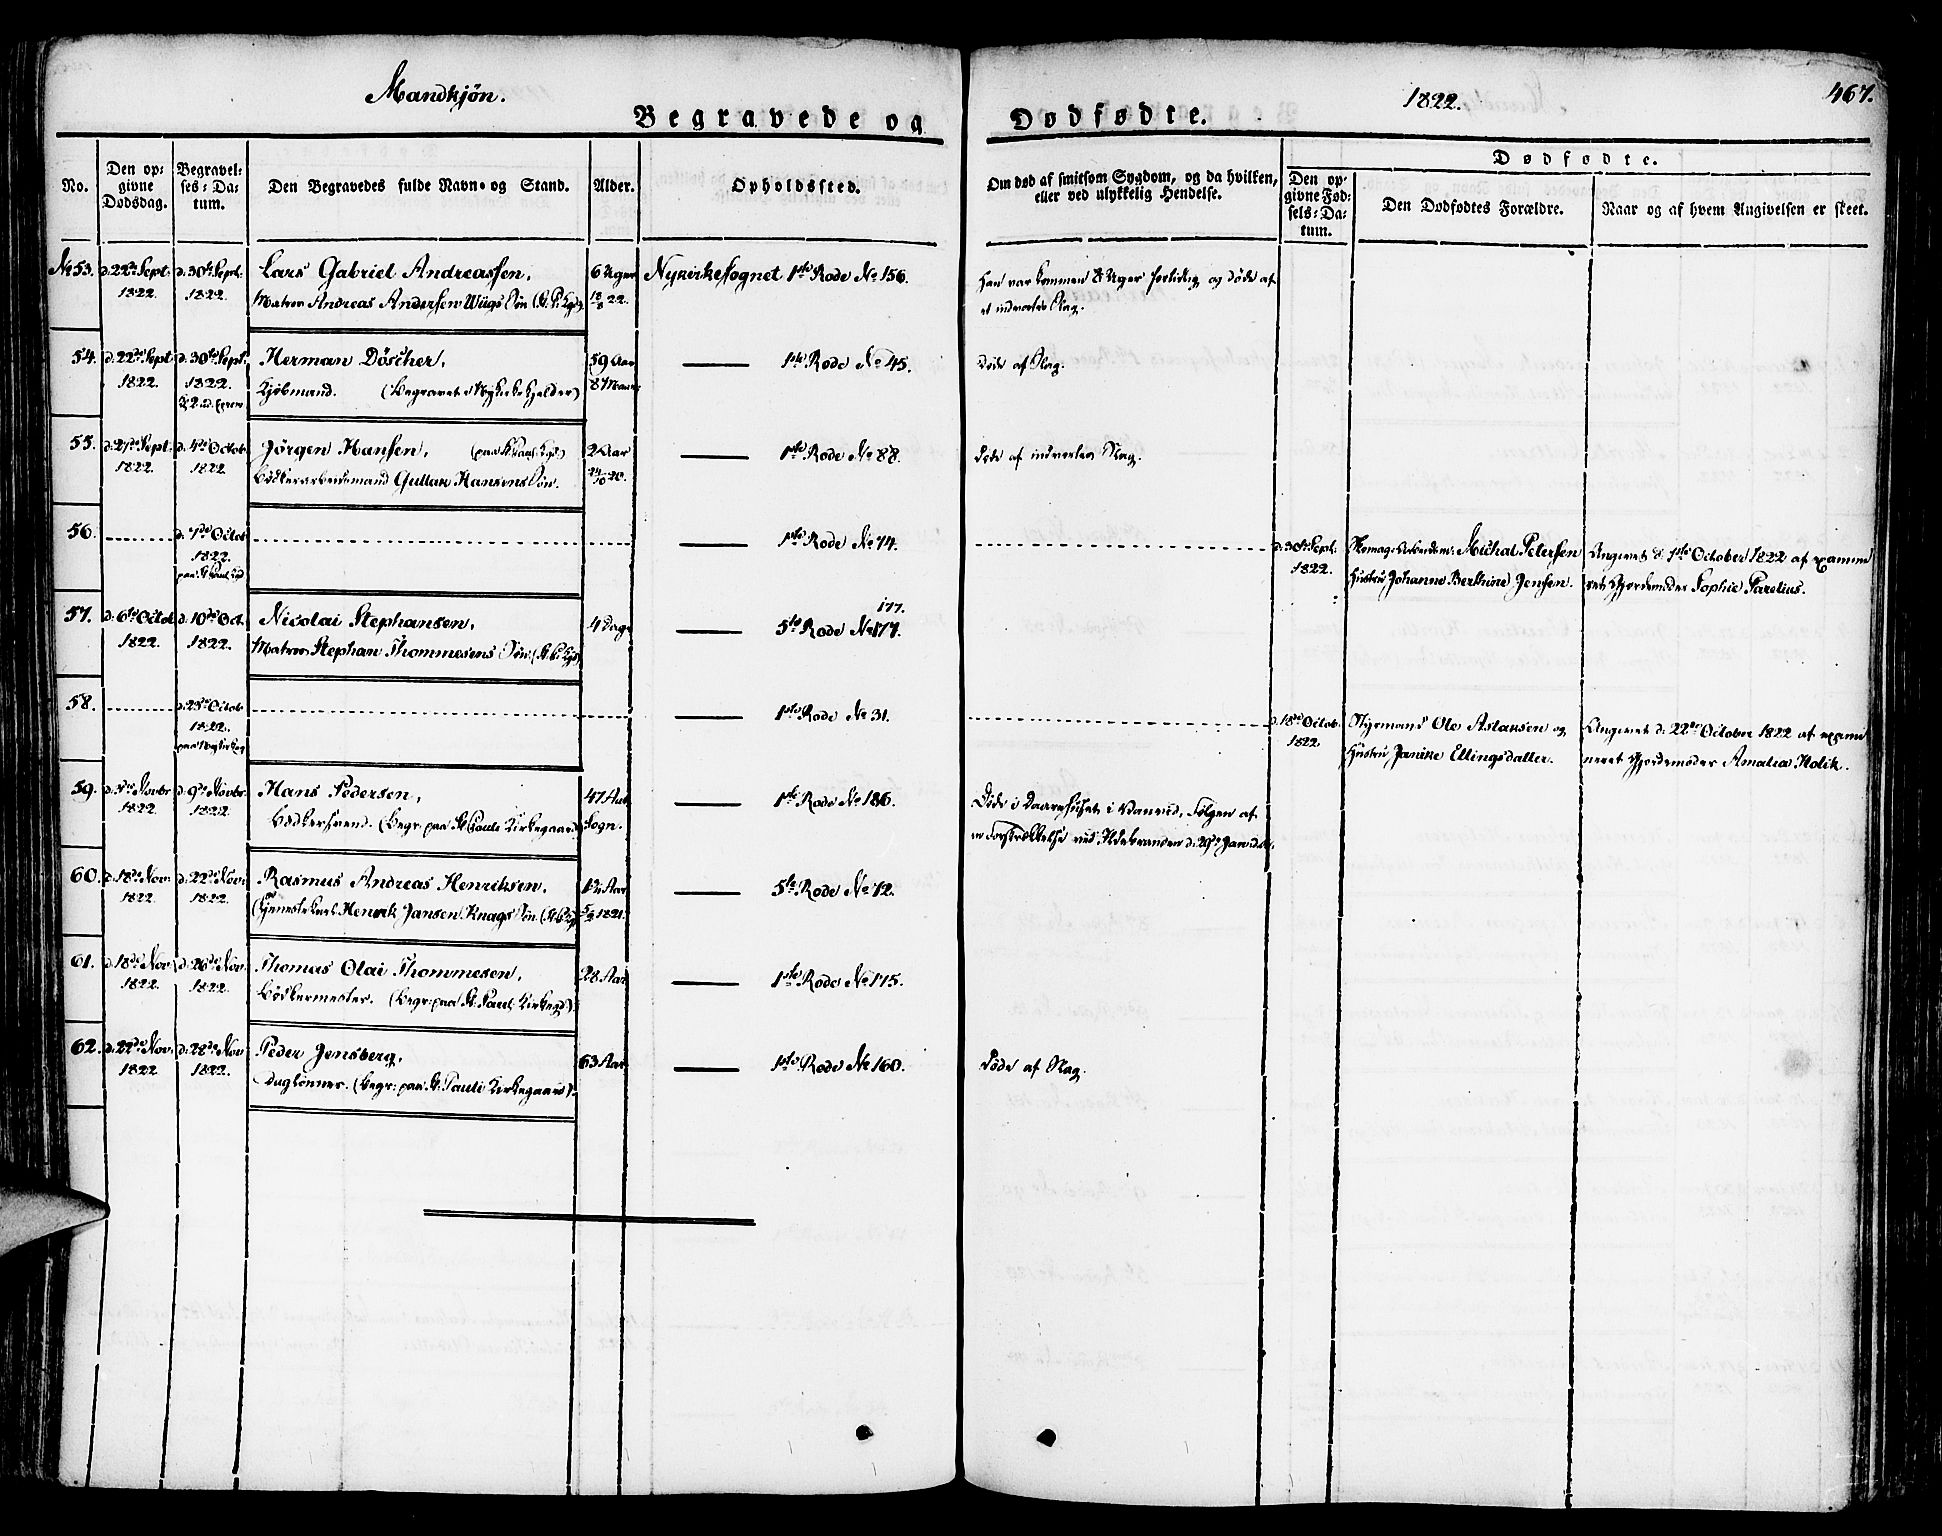 Mandkjøn.
1822.
467.
Begravede og
Dødfødte.
No.
Den op-
givne
Dødsdag.
Begravel-
ses-Da-
tum.
Den Begravedes fulde Navn- og Stand.
Alder.
Opholdssted.
Om død af smitsom Sygdom, og da hvilken,
eller ved ulykkelig Hendelse.
Dødfødte.
Den op-
givne Fød-
sels-Da-
tum.
Den Dødfødtes Forældre.
Naar og af hvem Angivelsen er skeet.
No 53. d. 22de Sept. d. 30te Sept. Lars Gabriel Andreassen, 6 Uger Nykirkesognet 1ste Rode No 156. Han var kommen 8 Uger for tidlig og døde af
1822. 1822. Matros Andreas Andersen Wiigs Søn (St. P. Kgd) 18/8 22. et indvortes Slag.
54. d. 22de Sept. d. 30te Sept. Herman Döscher, 59 Aar 1ste Rode No 45. Døde af Slag.
1822. 1822. Kjøbmand. (Begravet i Nykirke Kjelder) 8 Maan.
55. d. 27de Sept. d. 4de Octob. Jørgen Hansen, (paa St. Pauli Kgd) 2 Aar 1ste Rode No 88. Døde af indvortes Slag.
1822. 1822. Bødkerarbeidsmand Gullak Hansens Søn. 20.
56. d. 7de Octob. 1ste Rode No 74. d. 30te Sept. Skomagersvend Michal Petersen Angivet d. 1ste October 1822 af examine
1822. 1822. Hustru Johanne Berthine Jensen. ret Gjordemoder Sophie Parelius.
paa St. Pauli Kgd
57. d. 6te Octob. d. 10de Oct. Nicolai Stephansen, 4 Dage 5te Rode No 177. 177.
1822. 1822. Matros Stephan Thommesens Søn. (St. P. Kgd)
58. d. 25de Octob. 1ste Rode No 31. d. 18de Octob. Styrmand Ole Aslaksen og Angivet d. 22de October 1822 af exami
1822. 1822. Hustru Janike Ellingsdatter. neret Gjordemoder Amalia Holik.
paa Nykirkeg
59. d. 3de Novbr. d. 9de Novbr. Hans Pedersen, 47 Aar 1ste Rode No 186. Døde i Daarehuset i Vanvid, Følgen af
1822. 1822. Bødkersvend. (Begr. paa St. Pauli Kirkegaard) Sogn. en Forskrækkelse ved Ildebranden d. 29de Jan.
60. d. 18de Nov. d. 22de Nov. Rasmus Andreas Henriksen, 1 1/2 Aar 5te Rode No 12.
1822. 1822. Tjenestekarl Henrik Jansen Knags Søn (St. P. Kg) 1821.
61. d. 18de Nov. d. 26de Nov. Thomas Olai Thommesen, 28 Aar 1ste Rode No 175.
1822. 1822. Bødkermester. (Begr. paa St. Pauli Kirkegd)
62. d. 22de Nov. d. 28de Nov. Peder Jensberg, 63 Aar 1ste Rode No 160. Døde af Slag.
1822 1822. Daglønner. (Begr. paa St. Pauli Kirkegaard)